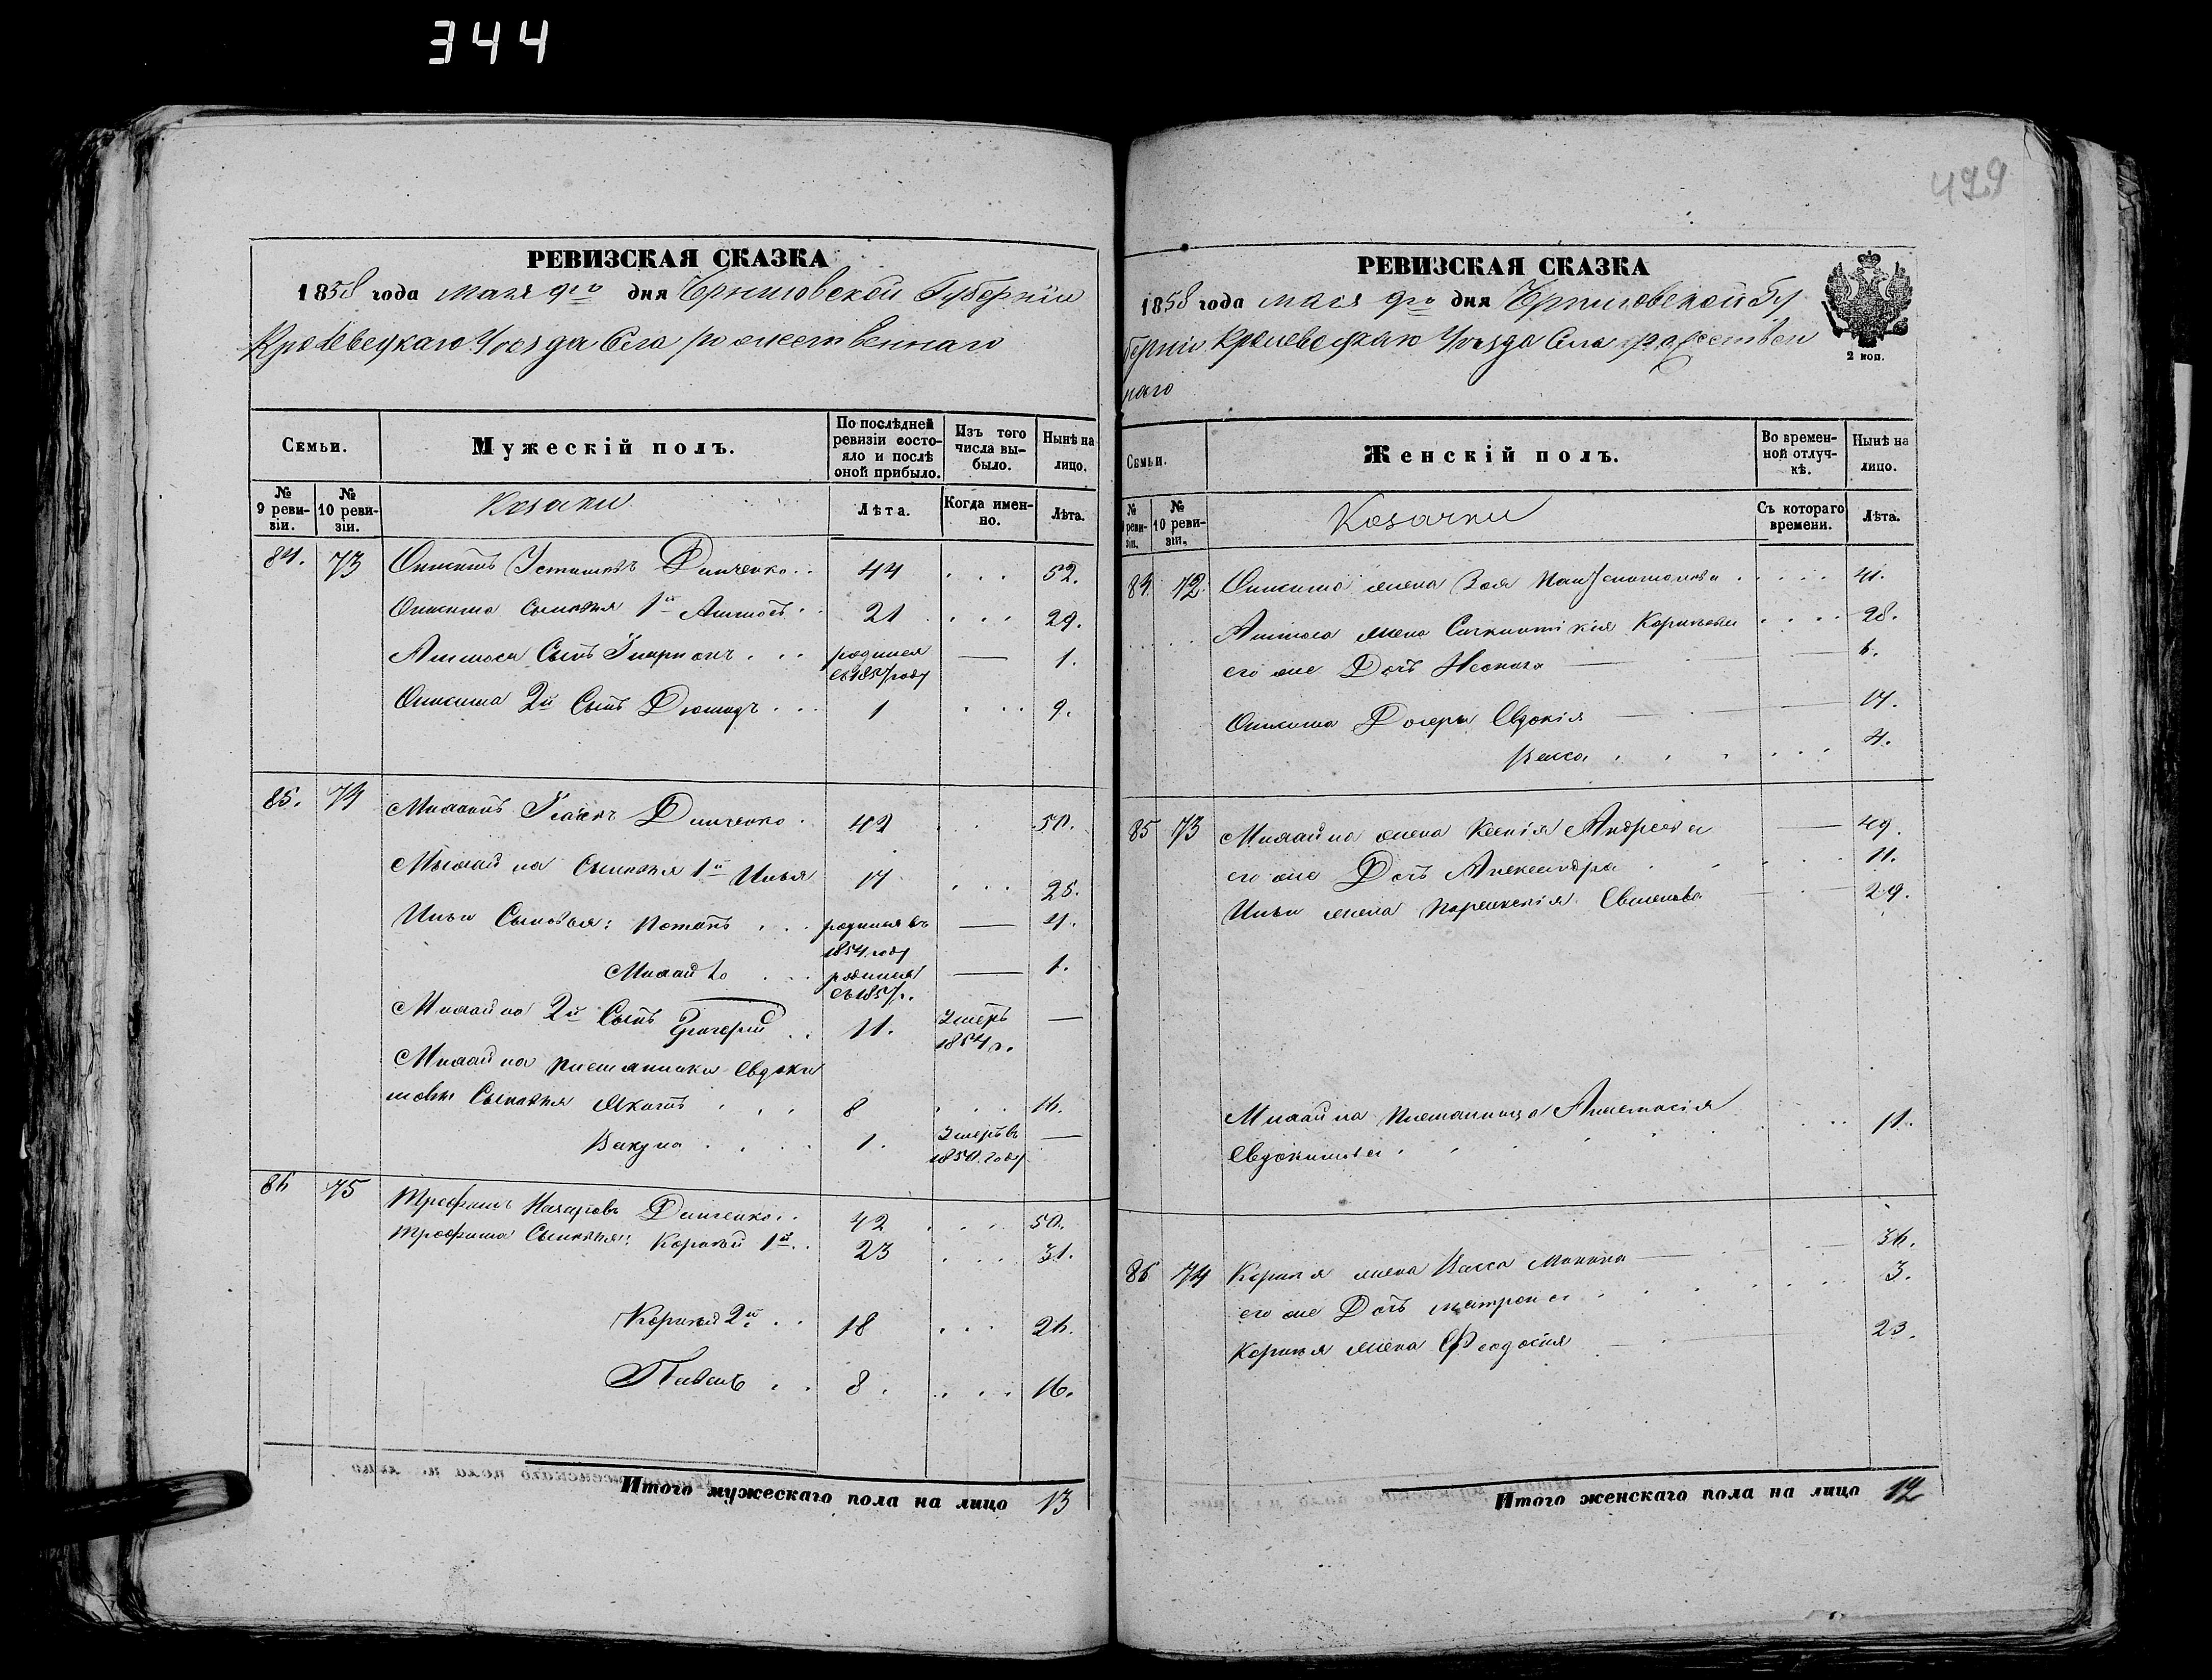 344
479
РЕВИЗСКАЯ СКАЗКА
1858 года мая 9го дня Черниговской Губернии
Кролевецкаго Уезда Села рожественнаго
Семьи.
Мужескій полъ.
По послѣдней ревизіи состояло и послѣ оной прибыло.
Изъ того числа выбыло.
Нынѣ на лицо.
№ 9 ревизіи.
№ 10 ревизіи.
Козаки
Лѣта.
Когда именно.
Лѣта.
84. 73 Онисимъ Демченко . . 44 . . . 52.
Онисима сыновья 1й 21 . . . 29.
Сынъ Иларионъ . . . родился въ 1857 году — 1.
Онисима 2й Сынъ . . . 1 . . . 9.
85. 74 Михаилъ Демченко . 42 . . . 50.
Михайла Сыновья 1й Илья 17 . . . 25.
Ильи Сыновья: Потапъ . . . родился въ 1854 году — 4.
Михайло . . . родился въ 1857 г. — 1.
Михайла 2й Сынъ Григорий . . 11. Умеръ 1854 г. —
Михайла племянника Евдоки
мовы Сыновья . . . 8 . . . 16.
Вакула . . . . 1. Умеръ въ 1850 году —
86 75 Трофимъ Назаровъ Демченко . . 42 . . . 50.
Трофима Сыновья: Корнѣй 1й . . 23 . . . 31.
Корнѣй 2й . . 18 . . . 26.
Павелъ . . 8 . . . . 16.
Итого мужескаго пола на лицо 13
РЕВИЗСКАЯ СКАЗКА
1858 года мая 9го дня Черниговской Гу
берніи Кролевецкаго Уезда Села рожествен
наго
2 коп.
Семьи.
Женскій полъ.
Во временной отлучкѣ.
Нынѣ на лицо.
№ 9 ревизіи.
№ 10 ревизіи.
Козачки
Съ котораго времени.
Лѣта.
84 72. Онисима жена . . . . . 41.
жена Корнѣева . . . . 28.
его же Дочь — 6.
Онисима Дочери Евдокія — 17.
Васса . . . 4.
85 73 Михайла жена Ксенія Андреева — 49.
его же Дочь Александра . . . 11.
Ильи жена — 29.
Михайла племянница Анастасія
Евдокимова . . . 11.
86 74 Корнѣя жена Васса — 36.
его же Дочь Матрона . . . 3.
Корнѣя жена Феодосія — 23.
Итого женскаго пола на лицо 12